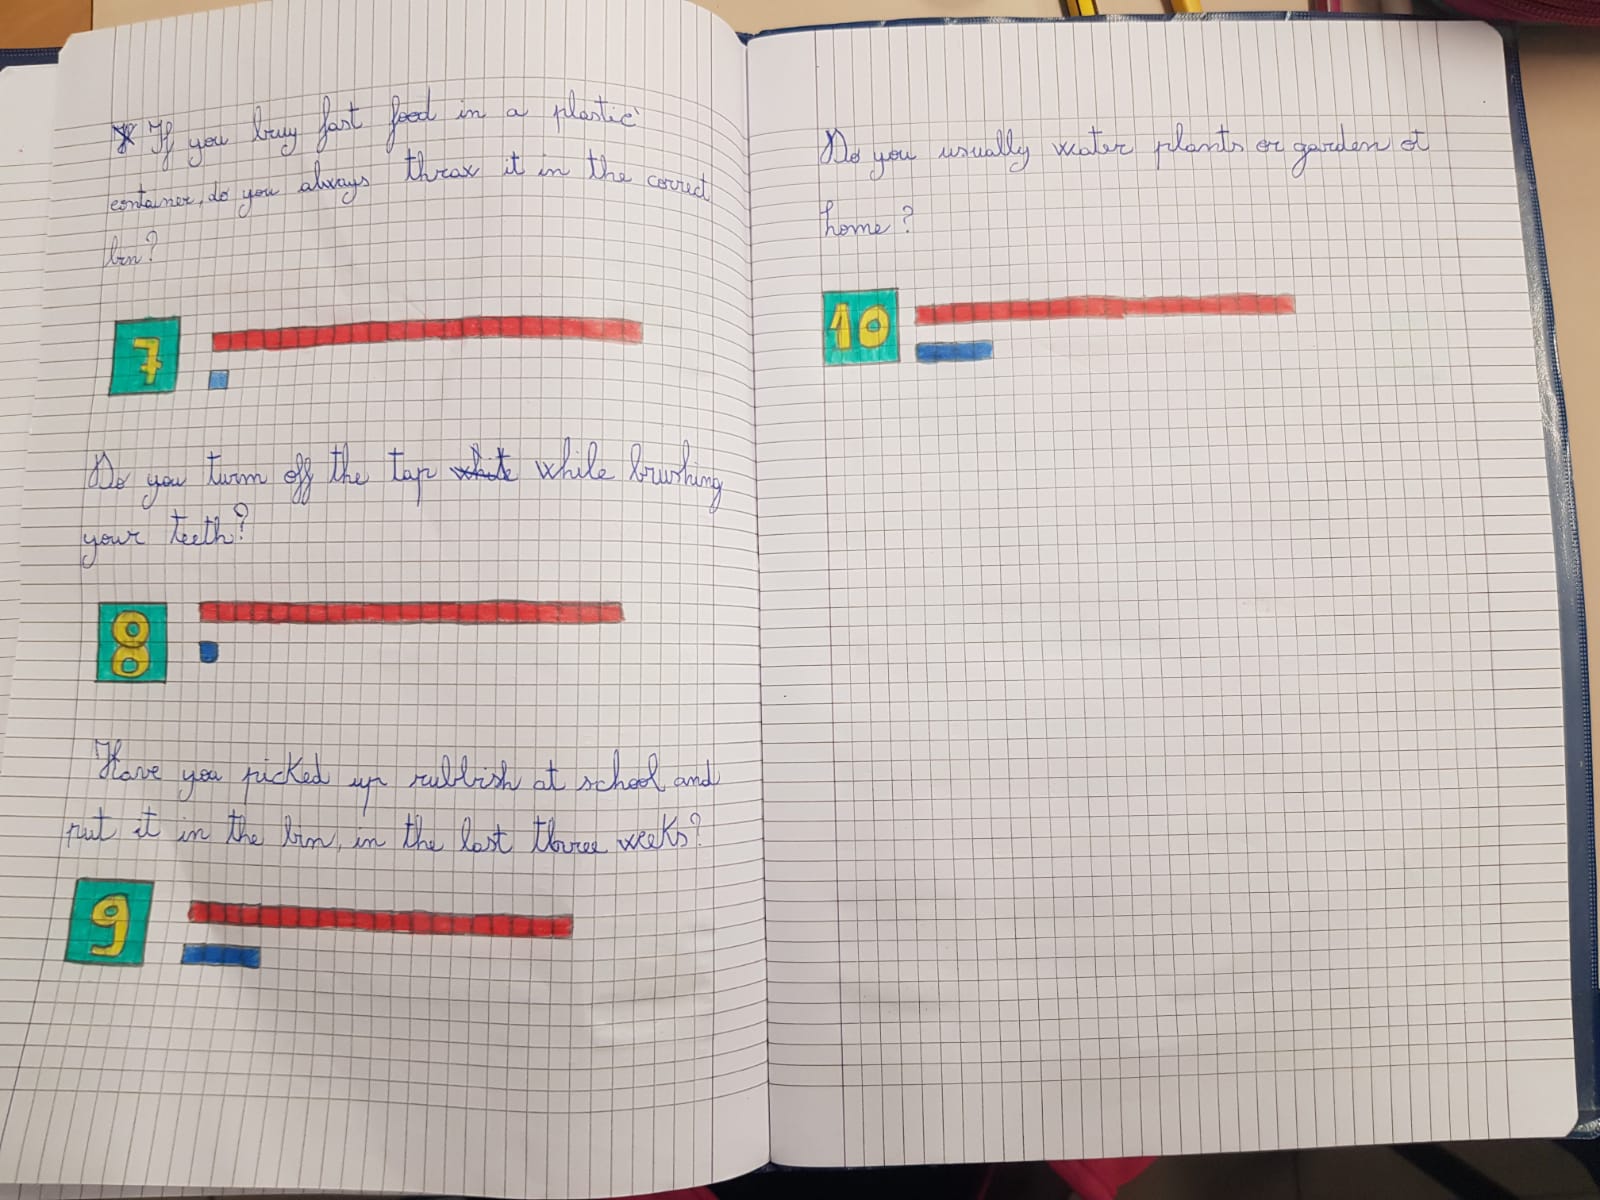 If you buy fast food in a plastic
container, do you always thrax it in the correct
bin?
7
Do you turn off the tap white while brushing
your teeth?
8
Have you picked up rubbish at school and
put it in the bin, in the last three weeks?
9
Do you usually water plants or garden at
home?
10